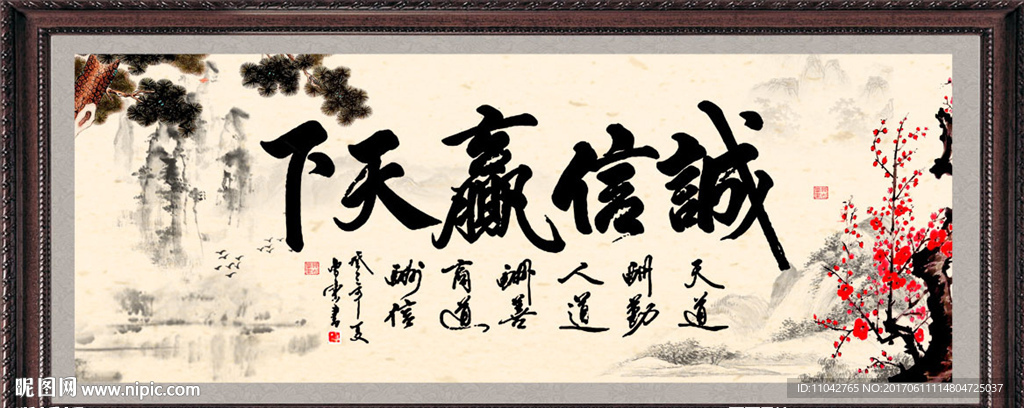 誠信贏天下
天道
酬勤
人道
酬善
商道
酬信
昵图网 www.nipic.com
ID:11042765 NO:20170611114804725037